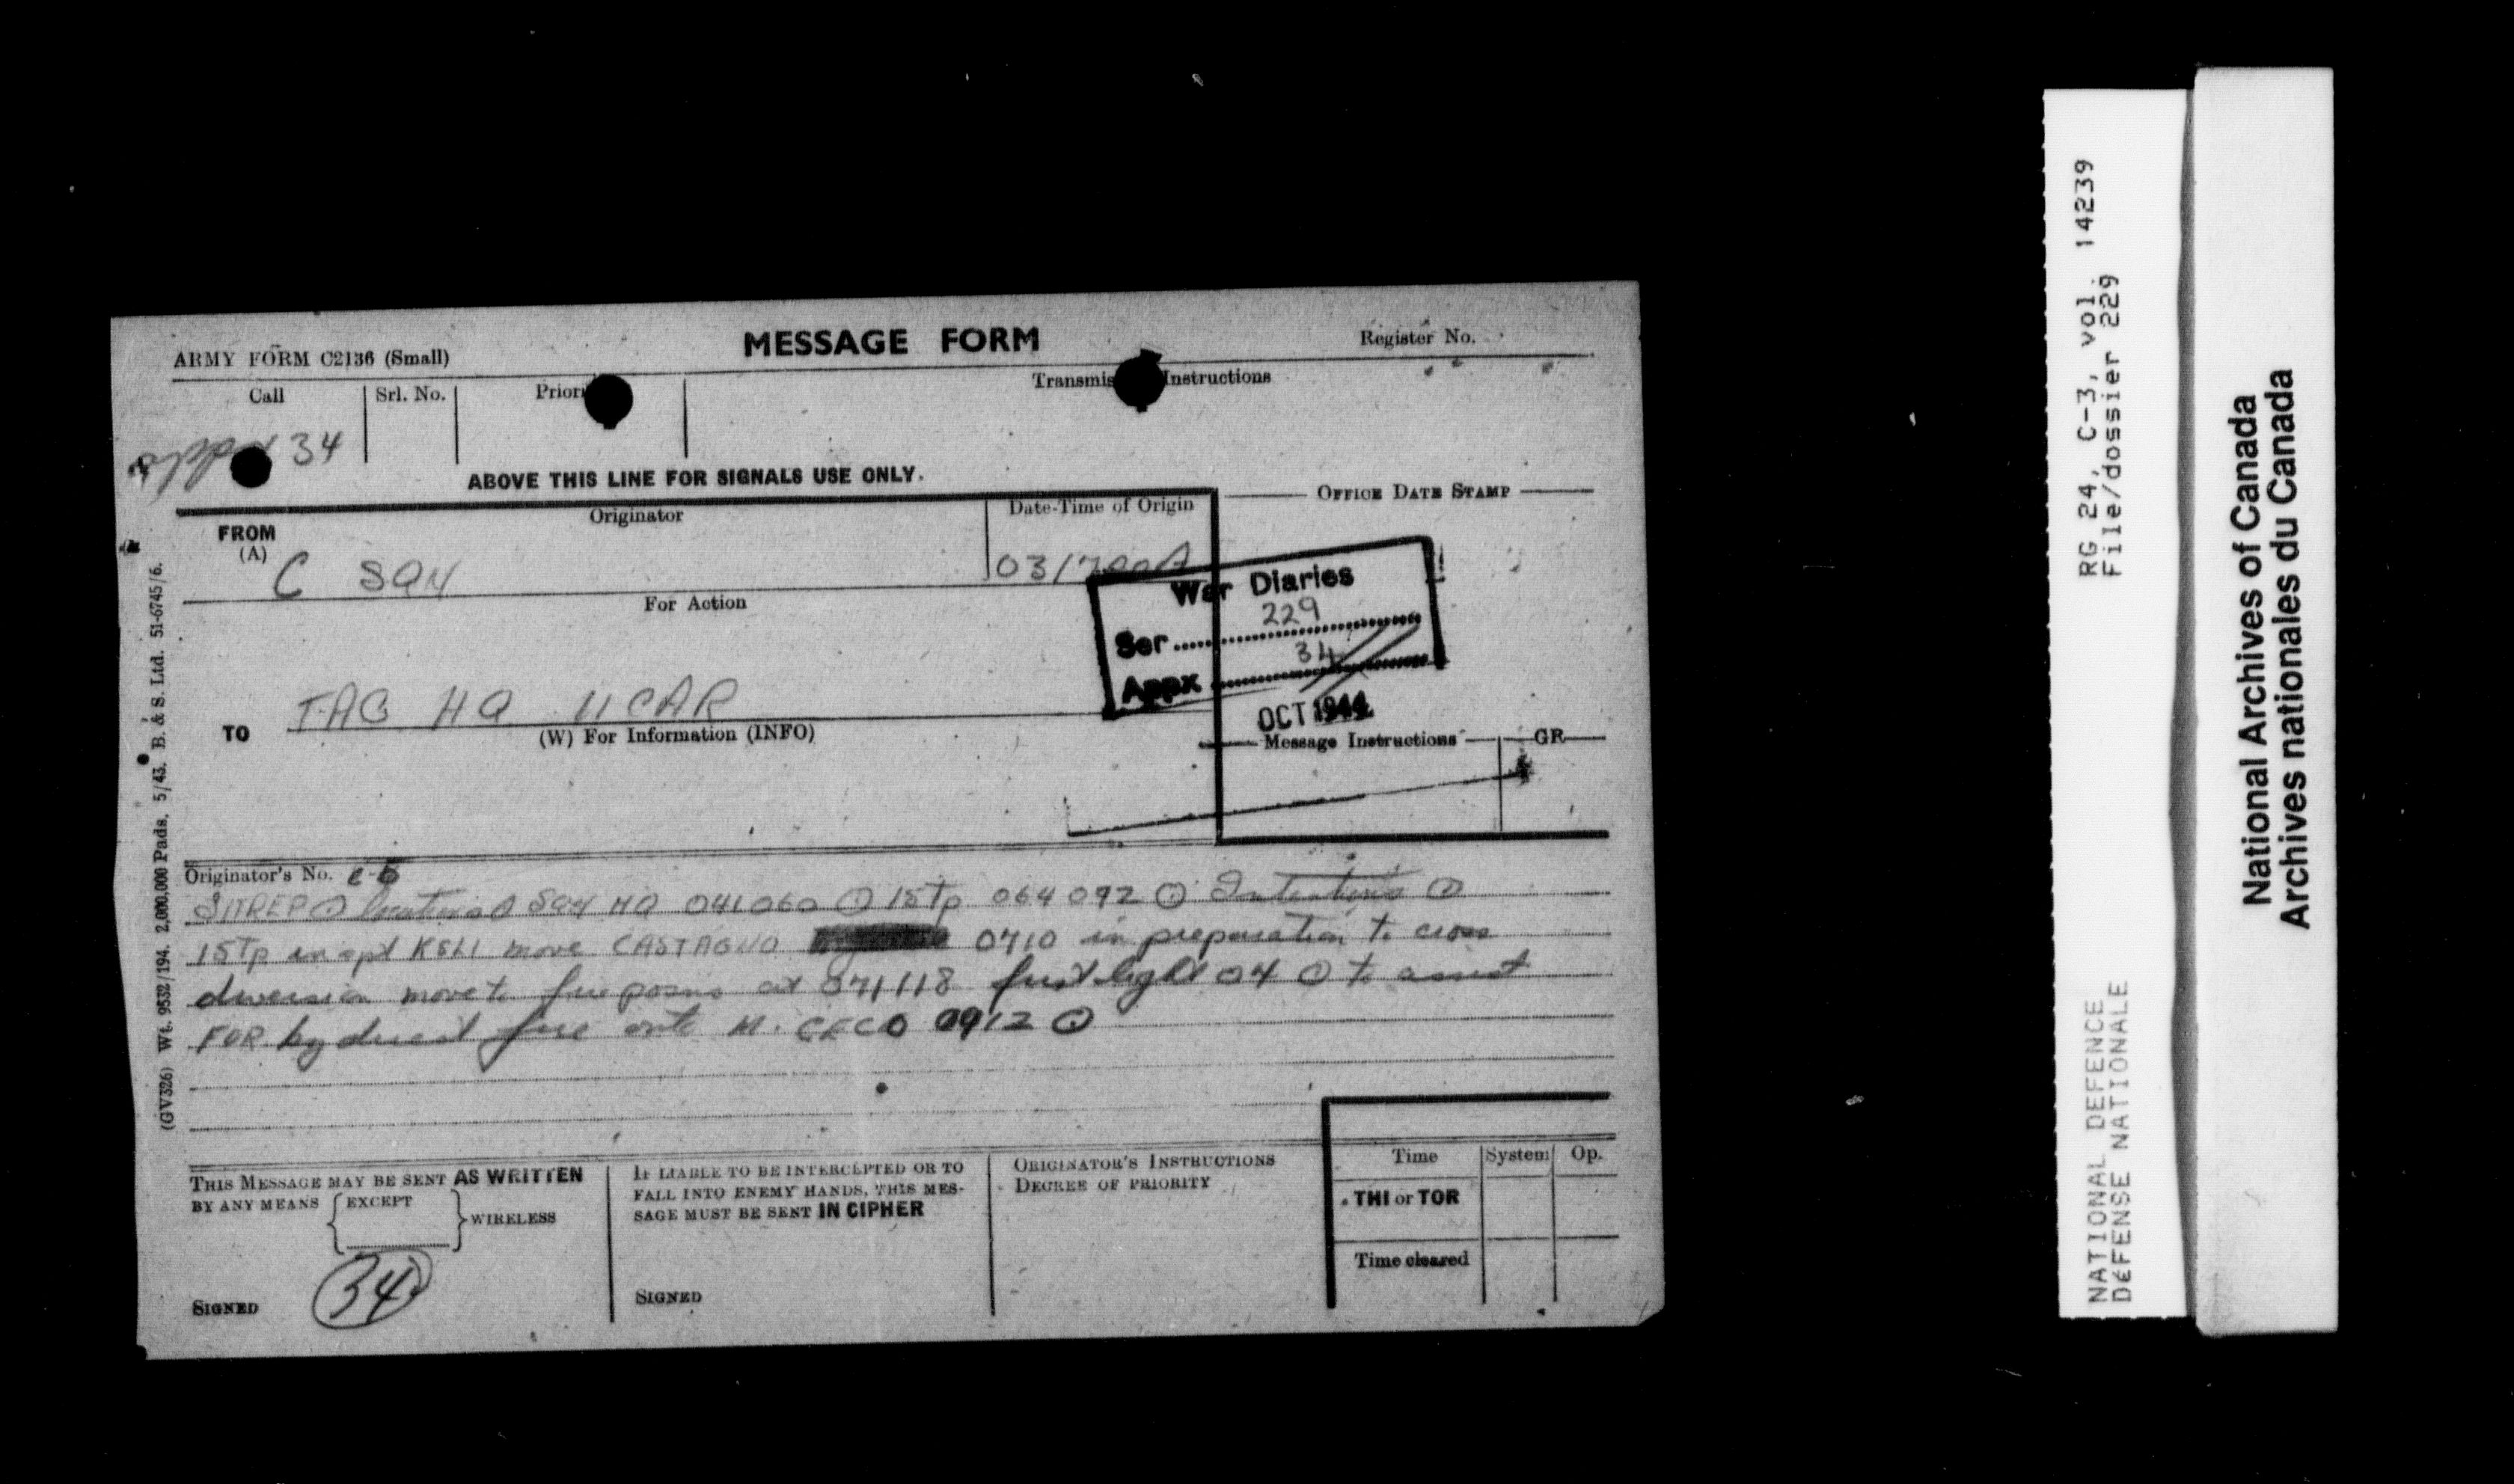 MESSAGE FORM
ARMY FORM C2136 (Small)
Register No.
Call
Srl. No.
Priori
Transmis Instructions
appx 34
ABOVE THIS LINE FOR SIGNALS USE ONLY.
OFFICE DATE STAMP
FROM
(A)
Originator
Date-Time of Origin
C SQN
031700A
For Action
War Diaries
Ser 229
Appx 34
OCT 1944
TO
TAC HQ 11 CAR
(W) For Information (INFO)
Message Instructions
GR
Originator's No. C-5
SITREP ⊙ locations ⊙ SQN HQ 041060 ⊙ 15 Tp 064092 ⊙ Intentions ⊙
15 Tp in spt KSLI move CASTAGNO 0710 in preparation to cross
diversion move to fire posns at 071118 first light 04 ⊙ to assist
FOR by direct fire onto M. CECO 0912 ⊙
THIS MESSAGE MAY BE SENT AS WRITTEN
BY ANY MEANS { EXCEPT } WIRELESS
SIGNED
34
IF LIABLE TO BE INTERCEPTED OR TO
FALL INTO ENEMY HANDS, THIS MES-
SAGE MUST BE SENT IN CIPHER
SIGNED
ORIGINATOR'S INSTRUCTIONS
DEGREE OF PRIORITY
Time
System
Op.
THI or TOR
Time cleared
(GV326) Wt. 9532/194. 2,000,000 Pads. 5/43. B. & S. Ltd. 51-6745/6.
RG 24, C-3, vol. 14239
File/dossier 229
NATIONAL DEFENCE
DéFENSE NATIONALE
National Archives of Canada
Archives nationales du Canada